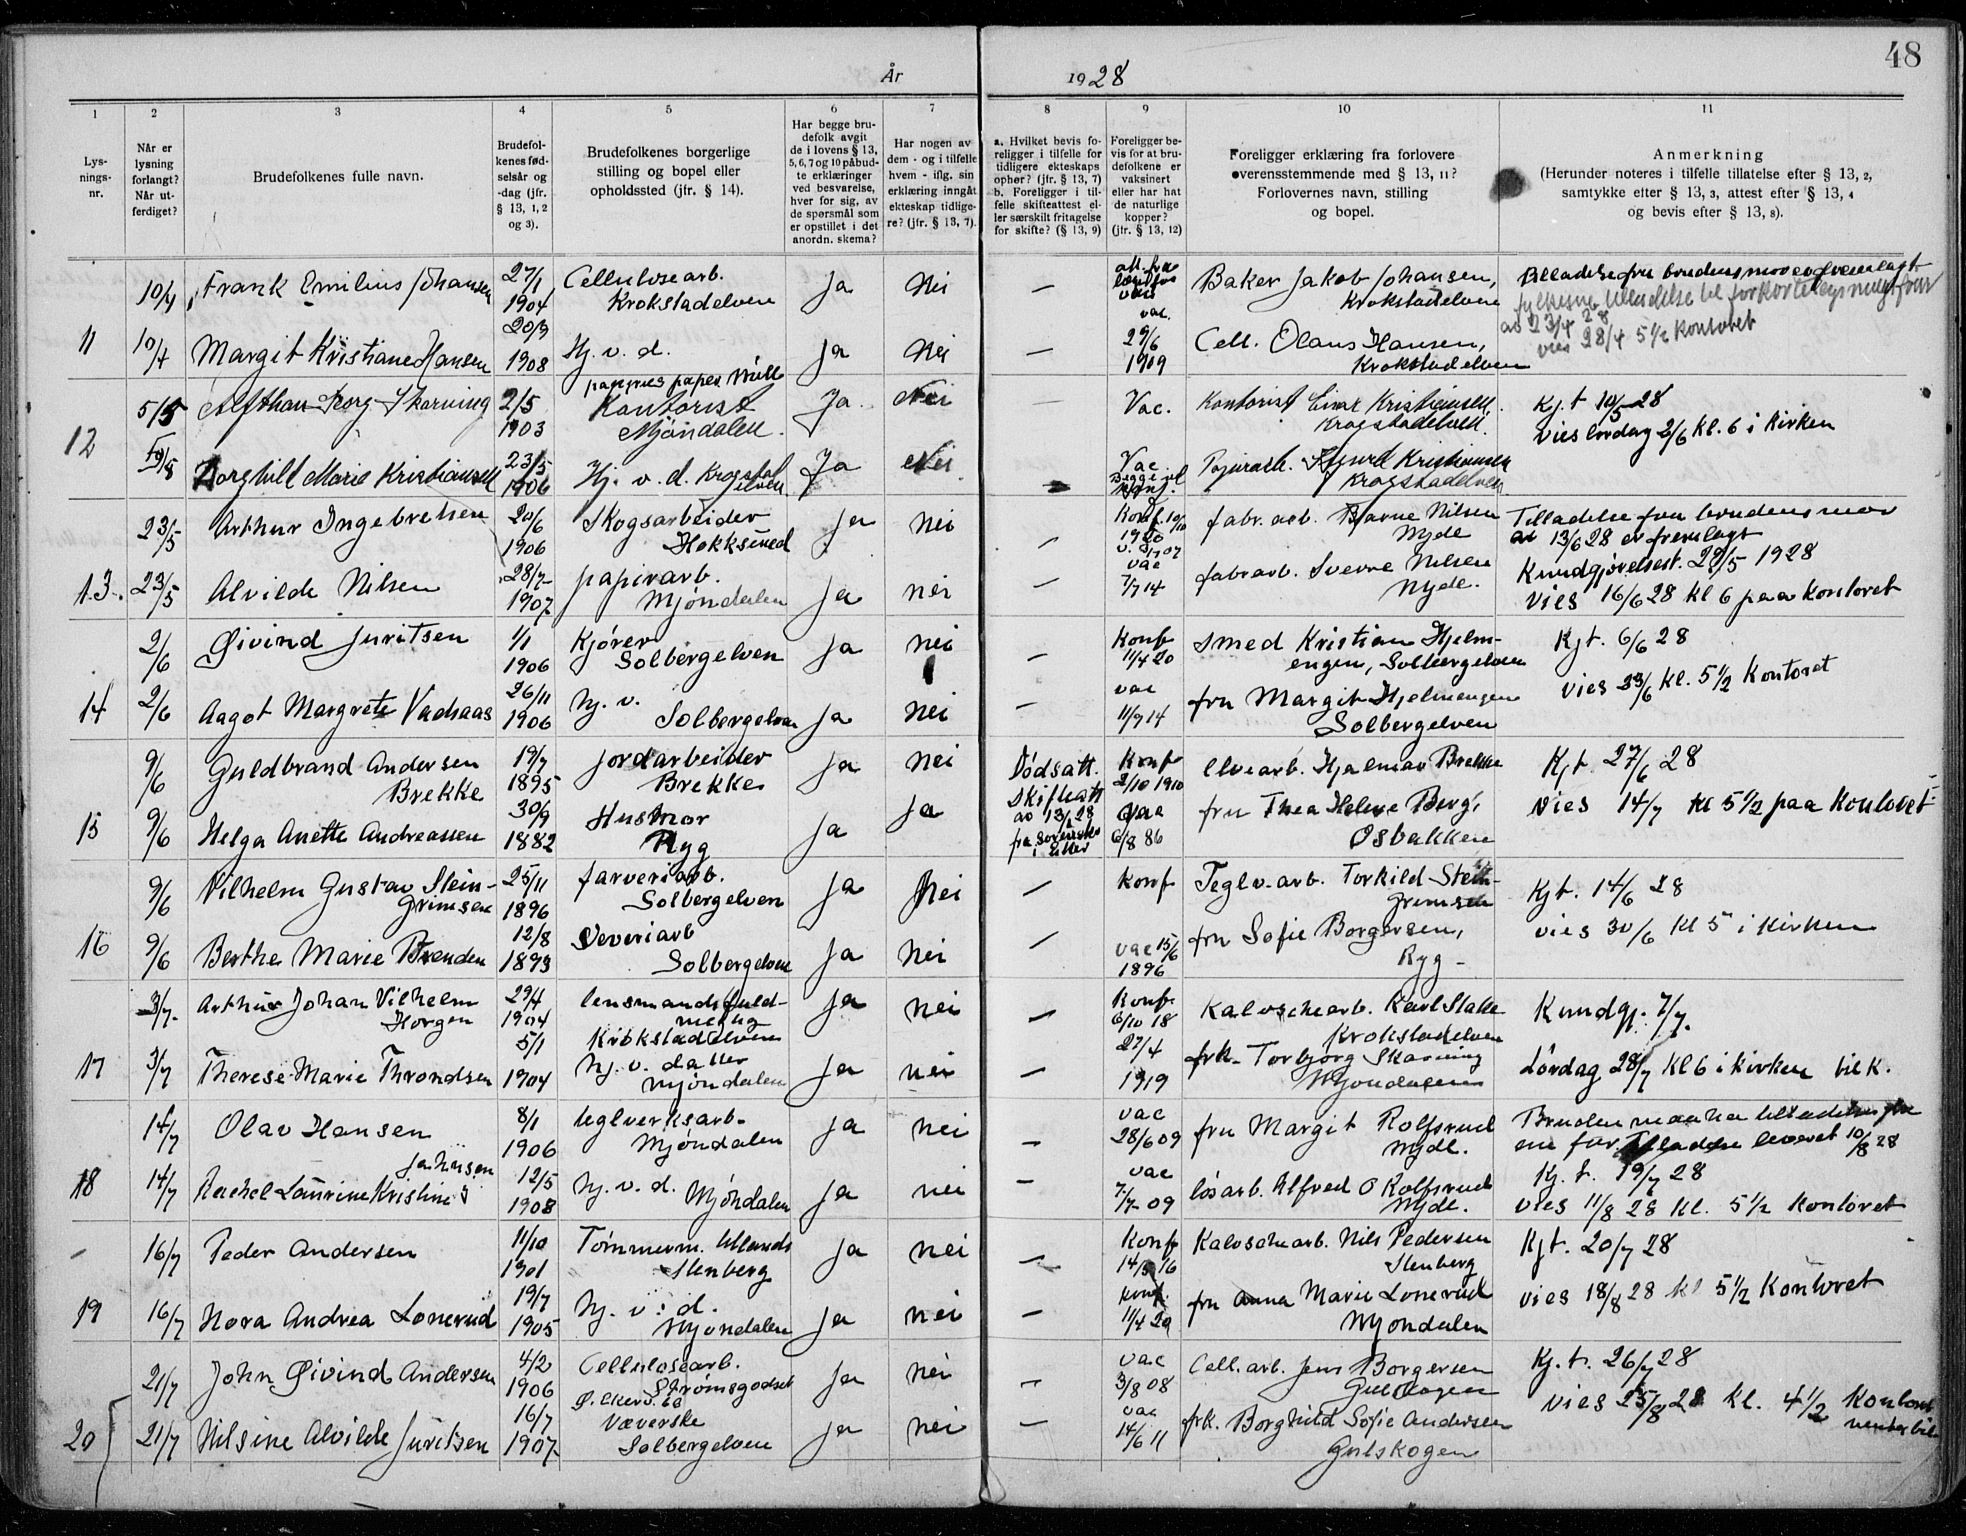 48
År 1928
1 2 3 4 5 6 7 8 9 10 11
Lysningsnr.
Når er lysning forlangt? Når utferdiget?
Brudefolkenes fulle navn.
Brudefolkenes fødselsår og -dag (jfr. § 13, 1, 2 og 3).
Brudefolkenes borgerlige stilling og bopel eller opholdssted (jfr. § 14).
Har begge brudefolk avgit de i lovens § 13, 5, 6, 7 og 10 påbudte erklæringer ved besvarelse, hver for sig, av de spørsmål som er opstillet i det anordn. skema?
Har nogen av dem - og i tilfelle hvem - iflg. sin erklæring inngått ekteskap tidligere? (jfr. § 13, 7).
a. Hvilket bevis foreligger i tilfelle for tidligere ekteskaps ophør? (jfr. § 13, 7) b. Foreligger i tilfelle skifteattest eller særskilt fritagelse for skifte? (§ 13, 9)
Foreligger bevis for at brudefolkene er vaksinert eller har hat de naturlige kopper? (jfr. § 13, 12)
Foreligger erklæring fra forlovere overensstemmende med § 13, 11? Forlovernes navn, stilling og bopel.
Anmerkning (Herunder noteres i tilfelle tillatelse efter § 13, 2, samtykke efter § 13, 3, attest efter § 13, 4 og bevis efter § 13, 8).
10/4 Frank Emilius Johansen 27/1 1904 Cellulosearb. Krokstadelven Ja Nei — Baker Jakob Johansen, Krokstadelven
11 10/4 Margit Kristiane Hansen 20/9 1908 Hj. v. d. Ja Nei — vac. 29/6 1919 Cell. Olaus Hansen, Krokstadelven av 23/4 28 vies 28/4 5 1/2 Kontoret
5/5 Skarning 2/5 1903 Kontorist Mjøndalen Ja Nei — Vac. Kontorist Einar Kristiansen, Krogstadelven. Kj.t 10/5 28
12 Borghild Marie Kristiansen 23/5 1906 Hj. v. d. Krogstadelven Ja Nei Vac Papirarb. Sigurd Kristiansen Krogstadelven vies lørdag 2/6 kl. 6 i Kirken
23/5 Arthur Ingebretsen 20/6 1906 Skogsarbeider Hokksund Ja Nei — Konf. 10/10 1920 fabr. arb. Bjarne Nilsen Mjdl Tilladelse fra brudens mor av 13/6 28 er fremlagt
13. 23/5 Alvilde Nilsen 28/7 1907 papirarb. Mjøndalen Ja nei — vac 7/7 14 fabr arb. Sverre Nilsen Mjdl. Kundgjørelsest. 29/5 1928 Vies 16/6 28 kl 6 paa Kontoret
2/6 Øivind Juritsen 1/1 1906 Kjører Solbergelven Ja nei — Konf 11/4 20 Smed Kristian Hjelmengen, Solbergelven Kjt. 6/6 28
14 2/6 Aagot Margrete Vadsaas 26/11 1906 Hj. v. Solbergelven Ja Nei — vac 11/7 14 fru Margit Hjelmengen Solbergelven vies 23/6 kl. 5 1/2 Kontoret
9/6 Guldbrand Andersen Brekke 19/7 1895 Jordarbeider Brekke Ja nei Dødsatt. Konf 2/10 1910 Elvearb. Hjalmar Brekke Kjt. 27/6 28
15 9/6 Helga Anette Andreassen 30/9 1882 Husmor Ryg Ja Ja Skifteatt av 13/2 28 fra Sorenskr. i Eiker Vac 6/8 86 fru Thea Helene Berg, Osbakken vies 14/7 kl 5 1/2 paa Kontoret
9/6 Vilhelm Gustav Steingrimsen 25/11 1896 farveriarb. Solbergelven Ja Nei — Konf Teglv. arb. Torkild Steingrimsen Kjt. 14/6 28
16 9/6 Berthe Marie Brenden 12/8 1893 Veveriarb Solbergelven Ja Nei — vac 15/6 1896 fru Sofie Borgersen, Ryg vies 30/6 kl 5 i Kirken
3/7 Arthur Johan Vilhelm Horgen 29/4 1904 lensmandsfuldmektig Krokstadelven Ja nei — Konf 6/10 18 Kaloschearb. Karl Krokstadelven Kundgj. 7/7.
17 3/7 Therese Marie Throndsen 5/1 1904 Hj. v. datter Mjøndalen Ja nei — 27/4 1919 frk. Torbjørg Skarning Mjøndalen Lørdag 28/7 kl 6 i kirken bil k.
14/7 Olav Hansen 8/1 1906 teglverksarb. Mjøndalen Ja nei — vac 28/6 09 fru Margit Rolfsrud Mjdl. Bruden maa ha
18 14/7 Rachel Laurine Kristine Johnsen 12/5 1908 Hj. v. d. Mjøndalen Ja nei — vac 7/7 09 løsarb. Alfred O Rolfsrud Mjdl. Kj. t. 19/7 28 vies 11/8 28 kl. 5 1/2 Kontoret
16/7 Peder Andersen 11/10 1901 Tømmerm. Stenberg Ja nei — Konf Kaloschearb. Nils Pedersen Stenberg Kjt. 20/7 28
19 16/7 Nora Andrea Lonerud 19/7 1905 Hj. v. d. Mjøndalen Ja nei — Konf. 11/4 20 fru Anna Marie Lonerud Mjøndalen vies 18/8 28 kl 5 1/2 Kontoret
21/7 John Øivind Andersen 4/2 1906 Cellulosearb. Strømsgodset Ja nei — vac 3/8 08 Cell. arb. Jens Borgersen Gulskogen Kj. t. 26/7 28
20 21/7 Nilsine Alvilde Juritsen 16/7 1907 Væverske Solbergelven Ja nei — vac 14/6 11 frk. Borghild Sofie Andersen Gulskogen vies 25/8 28 kl. 4 1/2 Kontoret